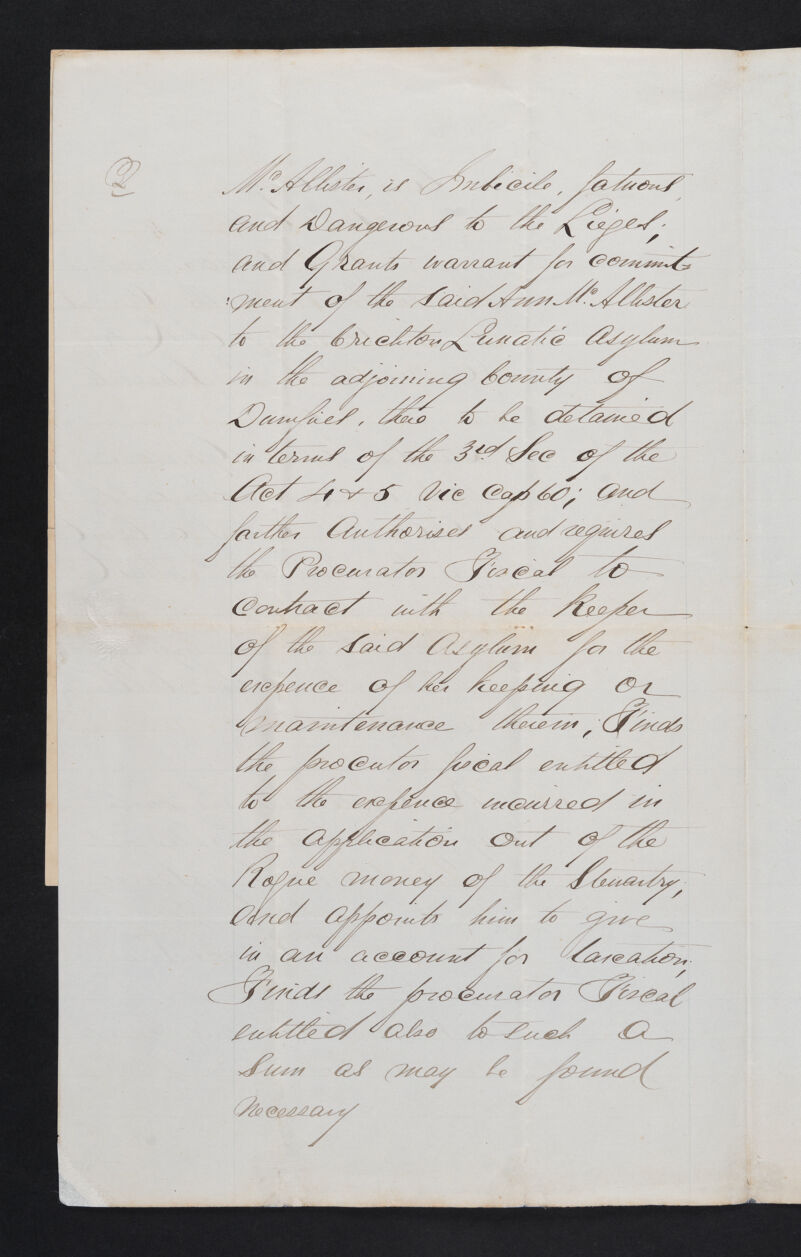 2
McAllister, is Imbicile, fatuous,
and Dangerous to the Lieges;
and Grants warrant for commit=
:ment of the said Ann McAllister
to the Crichton Lunatic Asylum
in the adjoining County of
Dumfries, there to be detained
in terms of the 3rd Sec of the
Act 4 & 5 Vic Cap 60; and
farther Authorises and requires
the Procurator Fiscal to
Contract with the Keeper
of the said Asylum for the
expence of her keeping or
maintenance therein; Finds
the procutor fiscal entitled
to the expence incurred in
the application out of the
Rogue money of the Stewartry;
and appoints him to give
in an account for taxation;
Finds the procurator Fiscal
entitled also to such a
Sum as may be found
necessary